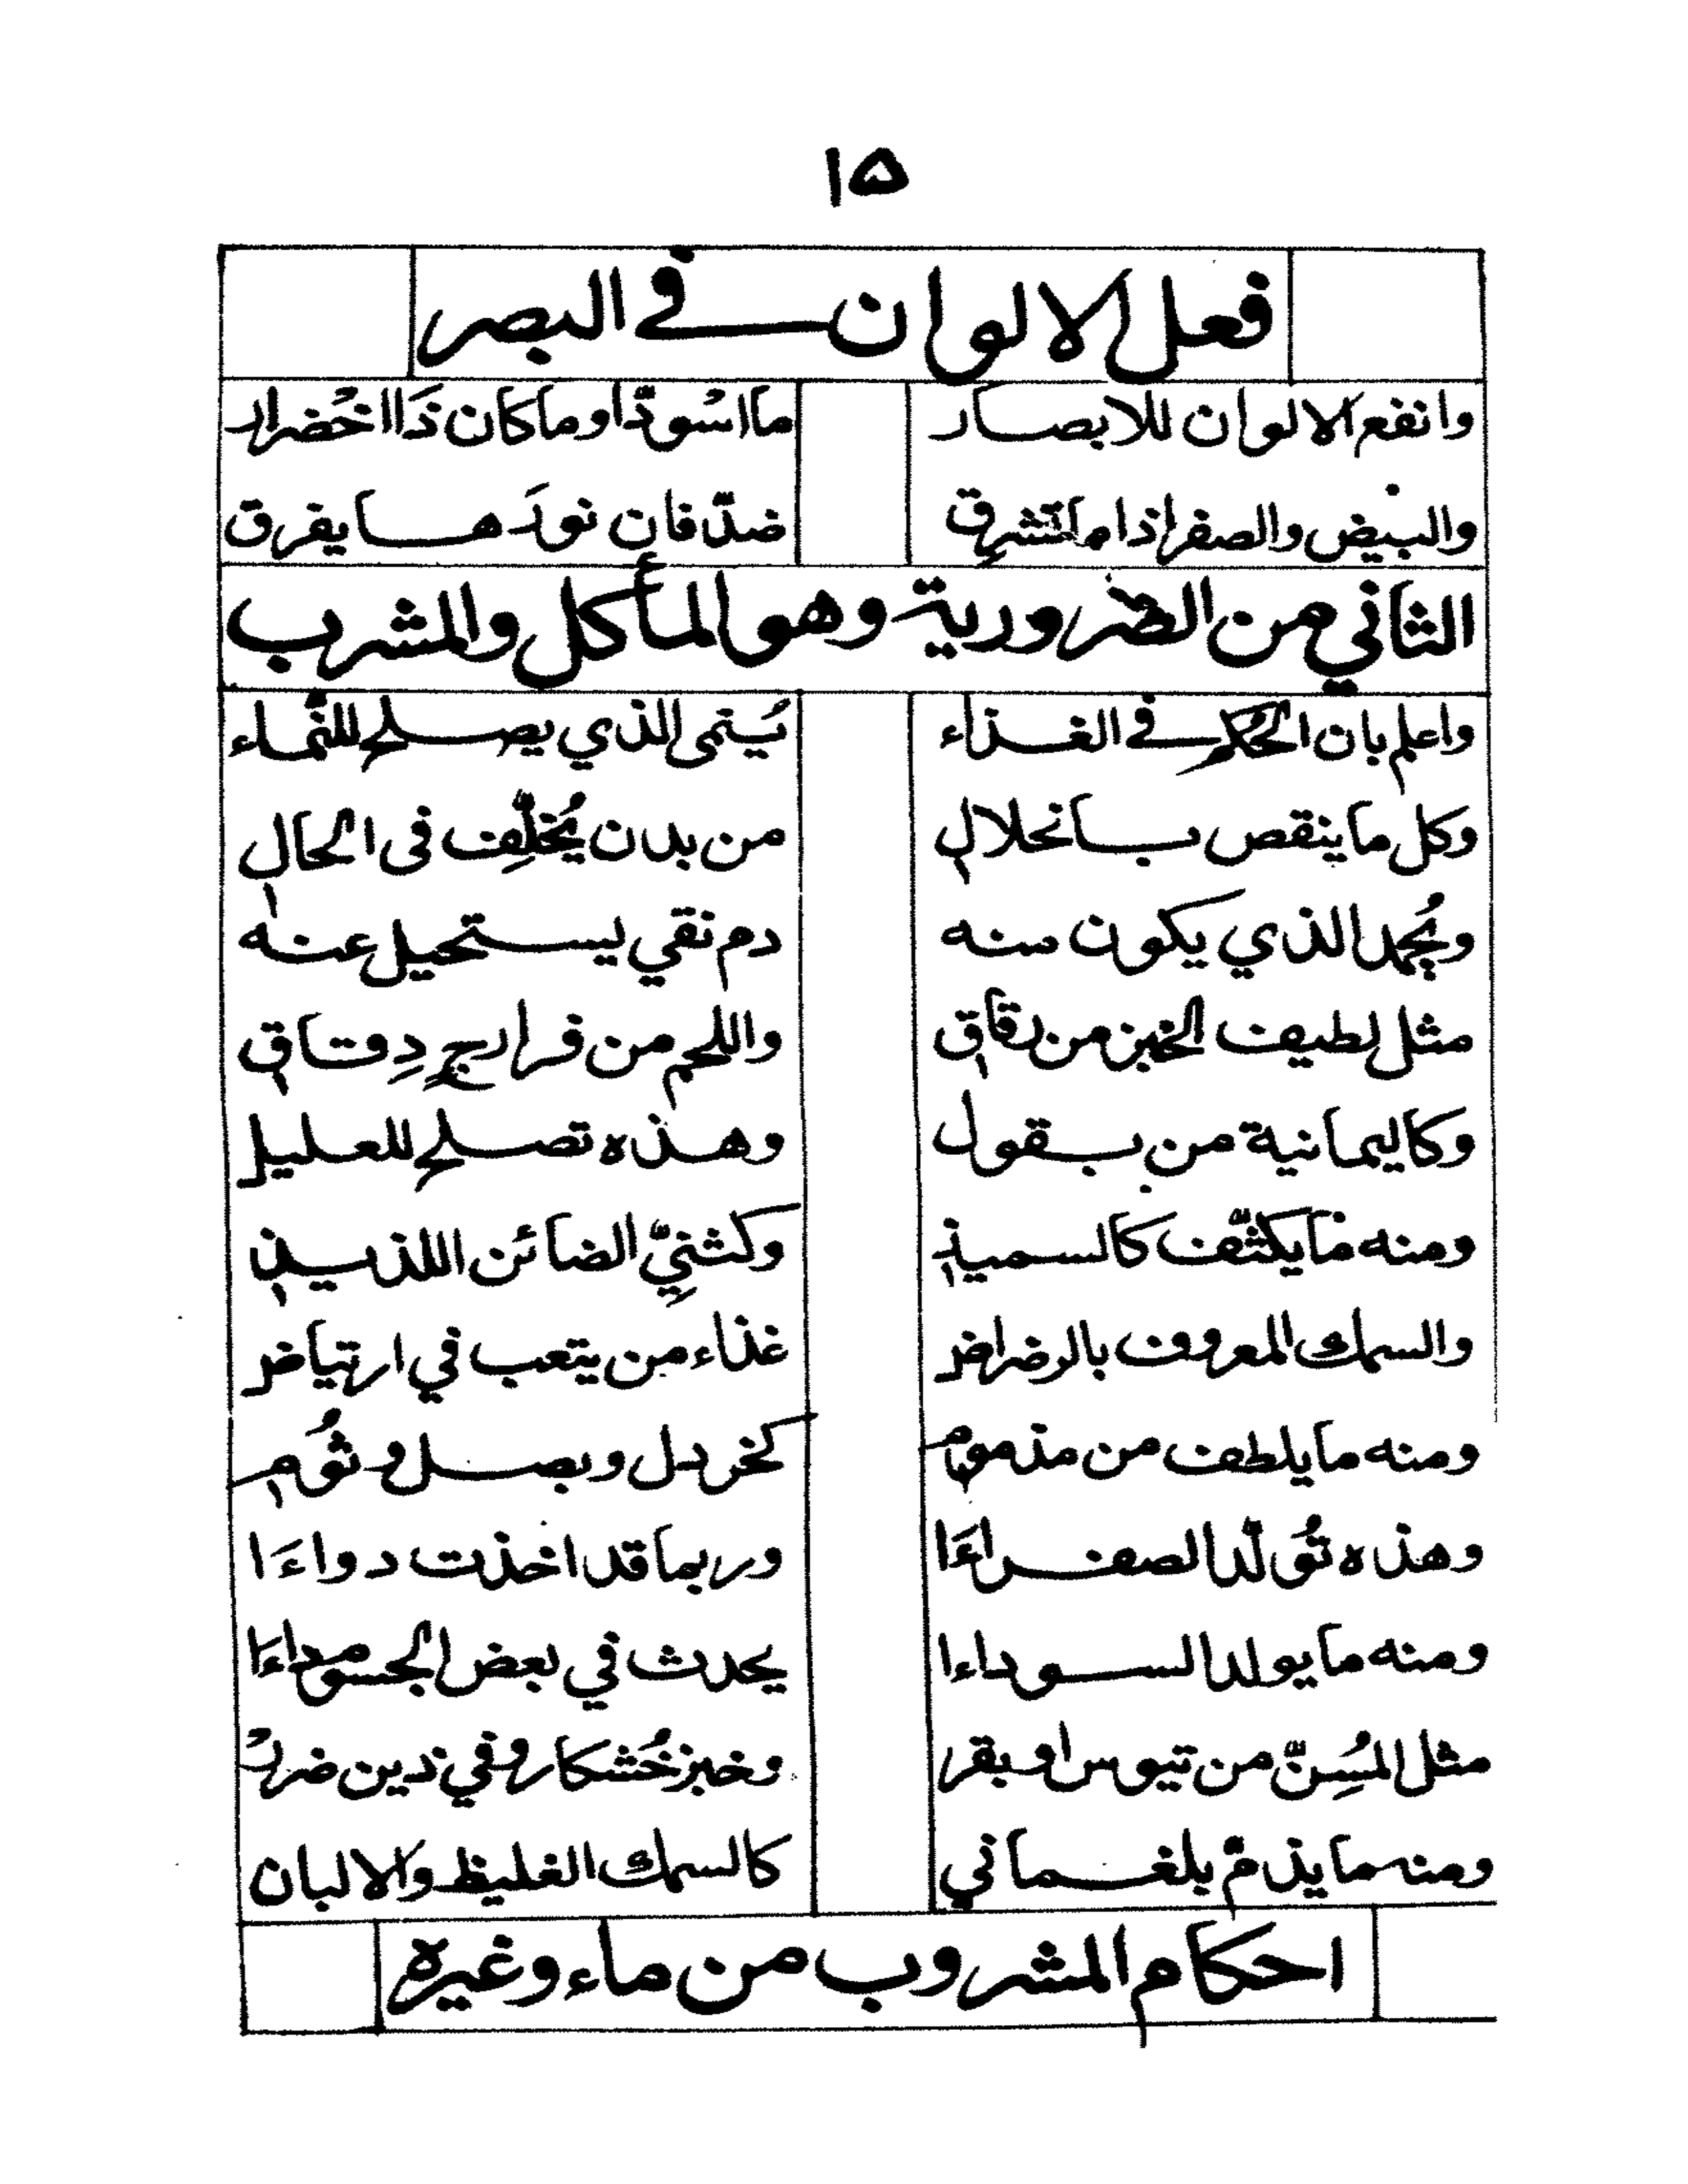 ١٥
فعل الالوان في البصر
وانفع الالوان للابصار ما اسْودّ او ما كان ذَا اخْضرار
والبيض والصفر اذا ما تشرق ضدّ فان نورَها يفرق
الثاني من الضرورية وهو المأكل والمشرب
واعلم بان الحكم في الغذاء يُنمى الذي يصلح للنَّماء
وكل ما ينقص بانحلال من بدن يُخلِّف فى الحال
ويُحمد الذي يكون منه دم نقي يستحيل عنه
مثل لطيف الخبز من رقاق واللحم من فرارجٍ دِقاق
وكاليمانية من بقول وهذه تصلح للعليل
ومنه ما يكثّف كالسميذ وكثنِيِّ الضائن اللذيذ
والسمك المعروف بالرضراض غذاء من يتعب في ارتياض
ومنه ما يلطف من مذموم كخردل وبصل وثُوم
وهذه تُولّد الصفراءَا وربما قد اخذت دواءَا
ومنه ما يولد السوداءا يحدث في بعض الجسوم داءَا
مثل المُسِنّ من تيوس او بقر وخبز خُشكار وفي ذين ضررْ
ومنه ما يذمّ بلغماني كالسمك الغليظ والالبان
احكام المشروب من ماء وغيره